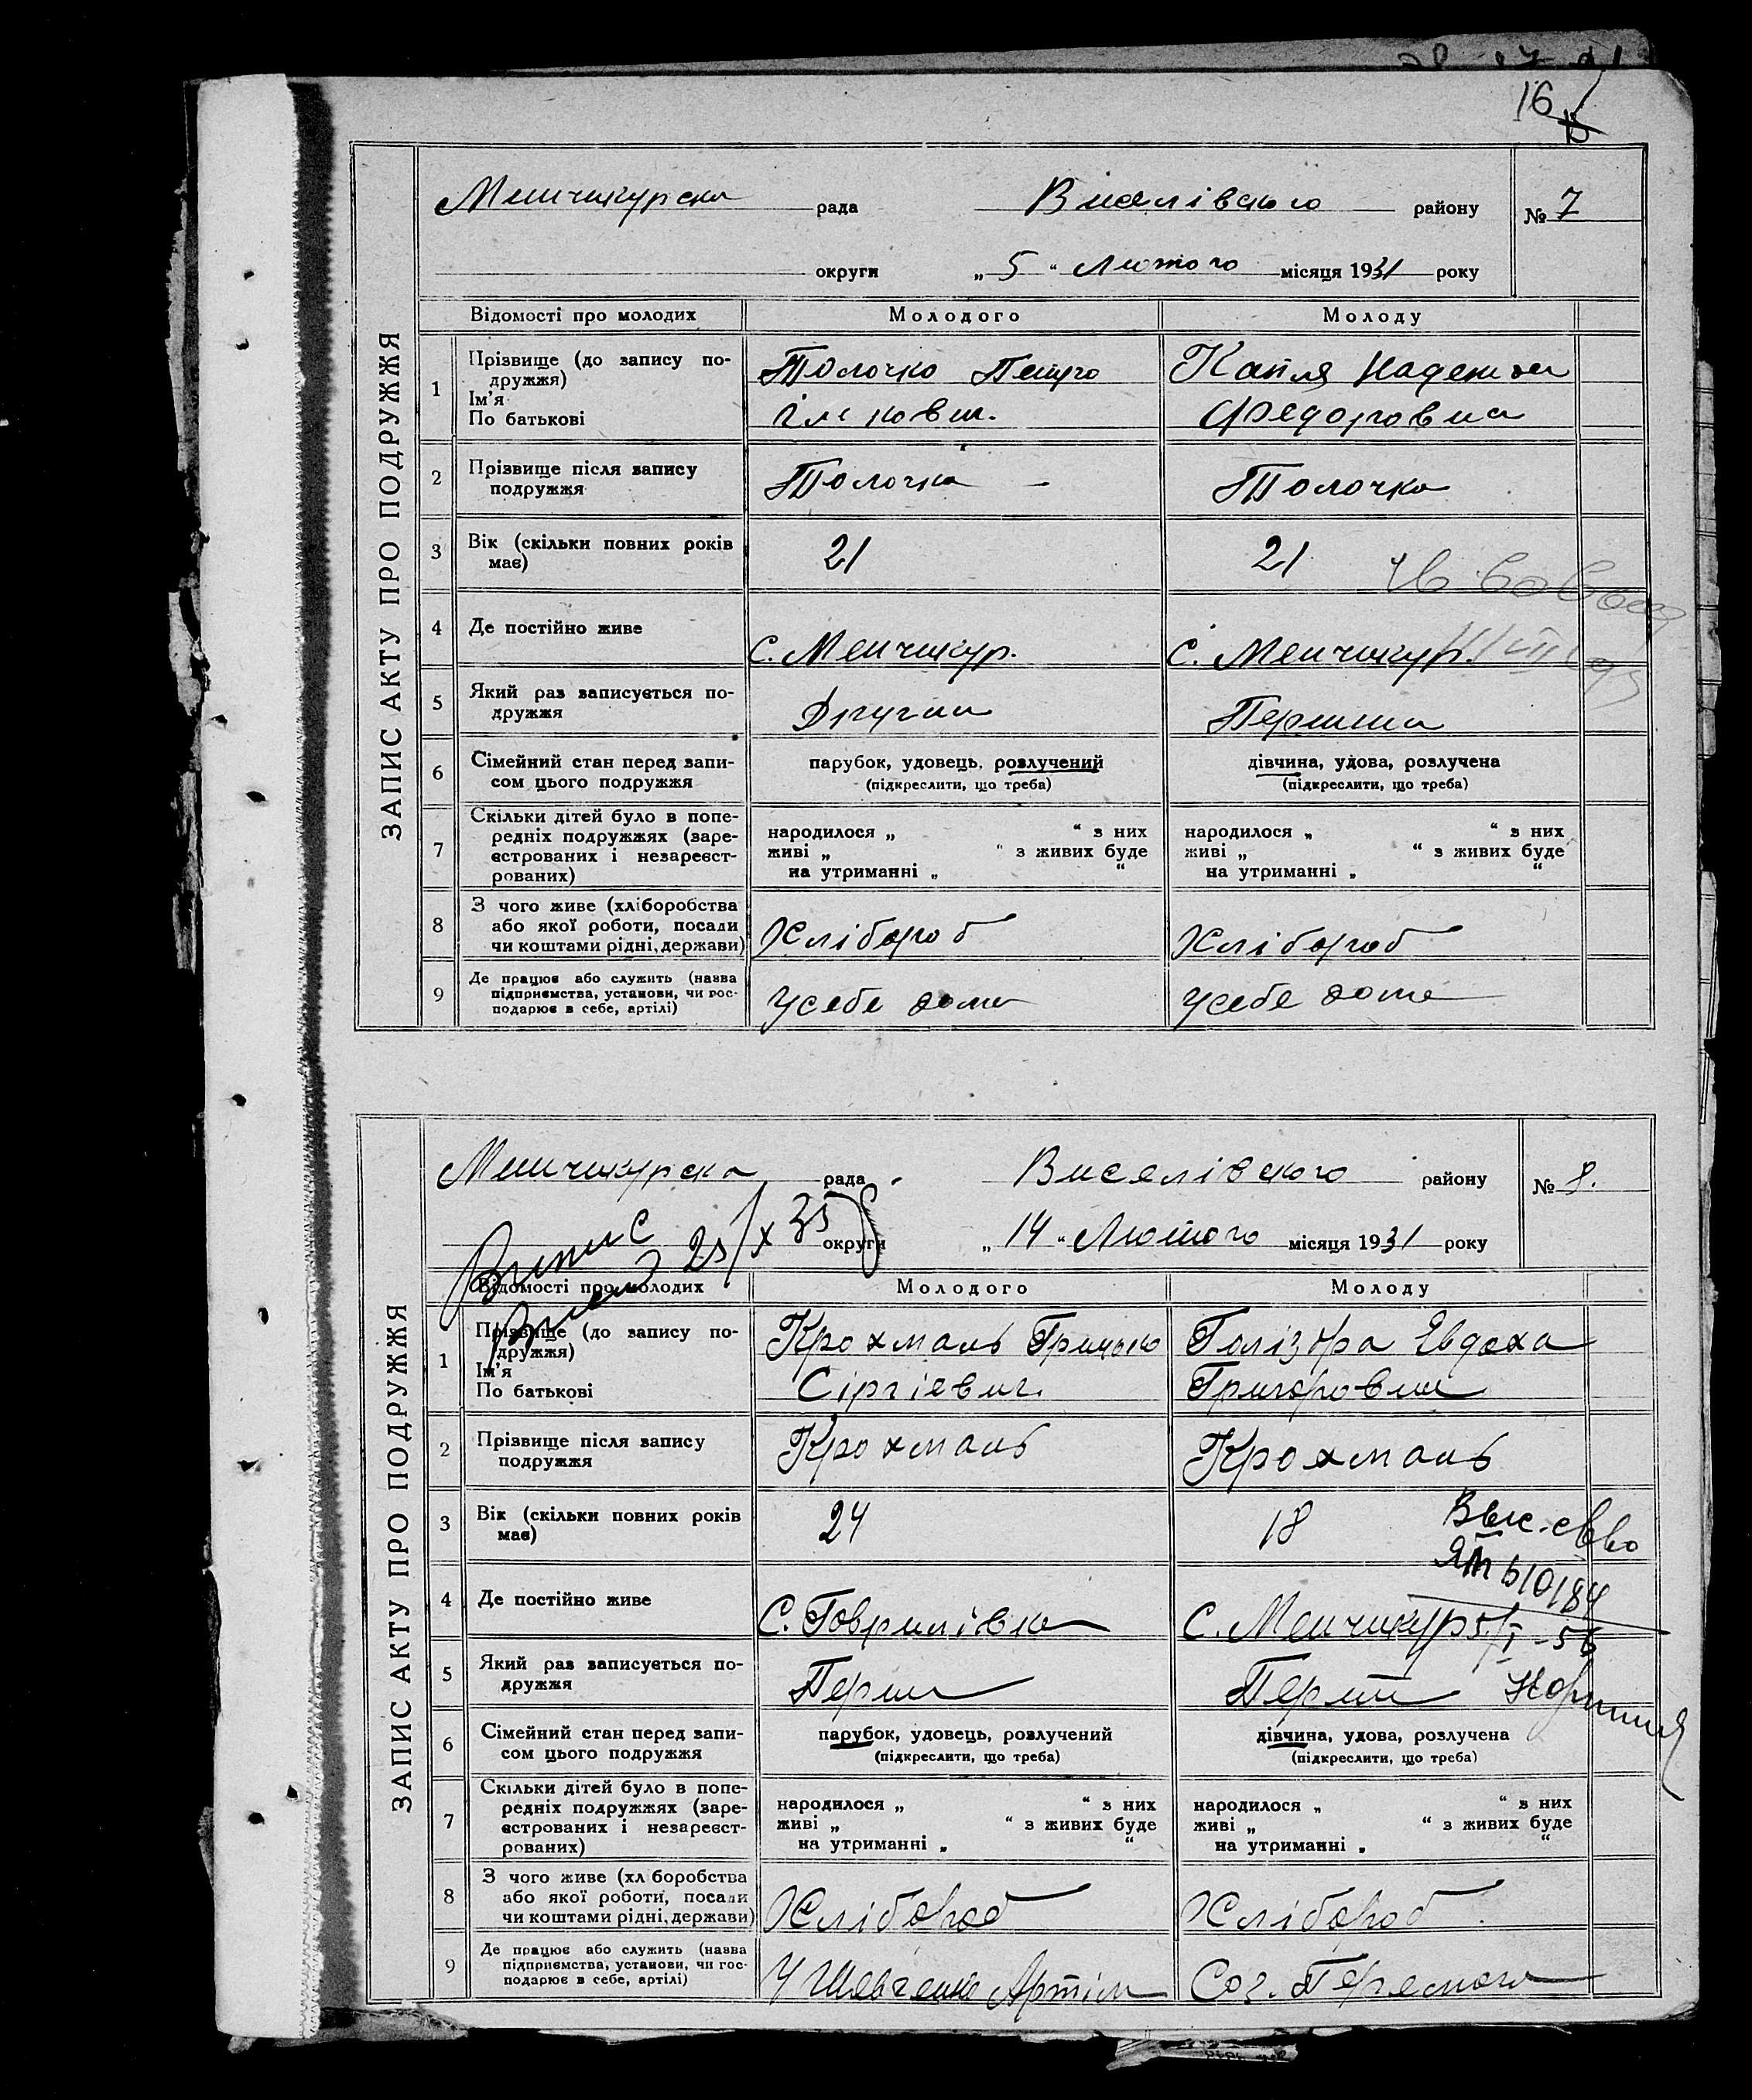 16
ЗАПИС АКТУ ПРО ПОДРУЖЖЯ
Менчикурска рада Виселівского району № 7
округи „ 5 “ Лютого місяця 1931 року
Відомості про молодих Молодого Молоду
1 Прізвище (до запису подружжя) Ім’я По батькові
Толочко Петро
Капля Надежда
Федоровна
2 Прізвище після запису подружжя
Толочко -
Толочко
3 Вік (скільки повних років має)
21
21
4 Де постійно живе
С. Менчикур.
С. Менчикур.
5 Який раз записується подружжя
Другий
6 Сімейний стан перед записом цього подружжя
парубок, удовець, розлучений
(підкреслити, що треба)
дівчина, удова, розлучена
(підкреслити, що треба)
7 Скільки дітей було в попередніх подружжях (зареєстрованих і незареєстрованих)
народилося „ “ з них
живі „ “ з живих буде
на утриманні „ “
народилося „ “ з них
живі „ “ з живих буде
на утриманні „ “
8 З чого живе (хліборобства або якої роботи, посади чи коштами рідні, держави)
Хлібороб
Хлібороб
9 Де працює або служить (назва підприємства, установи, чи господарює в себе, артілі)
Усебе дома
Усебе дома
ЗАПИС АКТУ ПРО ПОДРУЖЖЯ
Менчикурска рада Виселівского району № 8.
округи „ 14 “ Лютого місяця 1931 року
Відомості про молодих Молодого Молоду
1 Прізвище (до запису подружжя) Ім’я По батькові
Крохмаль Грицько
Сіргіевич
Голіздра Євдоха
2 Прізвище після запису подружжя
Крохмаль
Крохмаль
3 Вік (скільки повних років має)
24
18
4 Де постійно живе
С. Гаврилівка
С. Менчикур
5 Який раз записується подружжя
Перши
6 Сімейний стан перед записом цього подружжя
парубок, удовець, розлучений
(підкреслити, що треба)
дівчина, удова, розлучена
(підкреслити, що треба)
7 Скільки дітей було в попередніх подружжях (зареєстрованих і незареєстрованих)
народилося „ “ з них
живі „ “ з живих буде
на утриманні „ “
народилося „ “ з них
живі „ “ з живих буде
на утриманні „ “
8 З чого живе (хл боробства або якої роботи, посади чи коштами рідні, держави)
Хлібороб
Хлібороб
9 Де працює або служить (назва підприємства, установи, чи господарює в себе, артілі)
У Шевченко Артіл